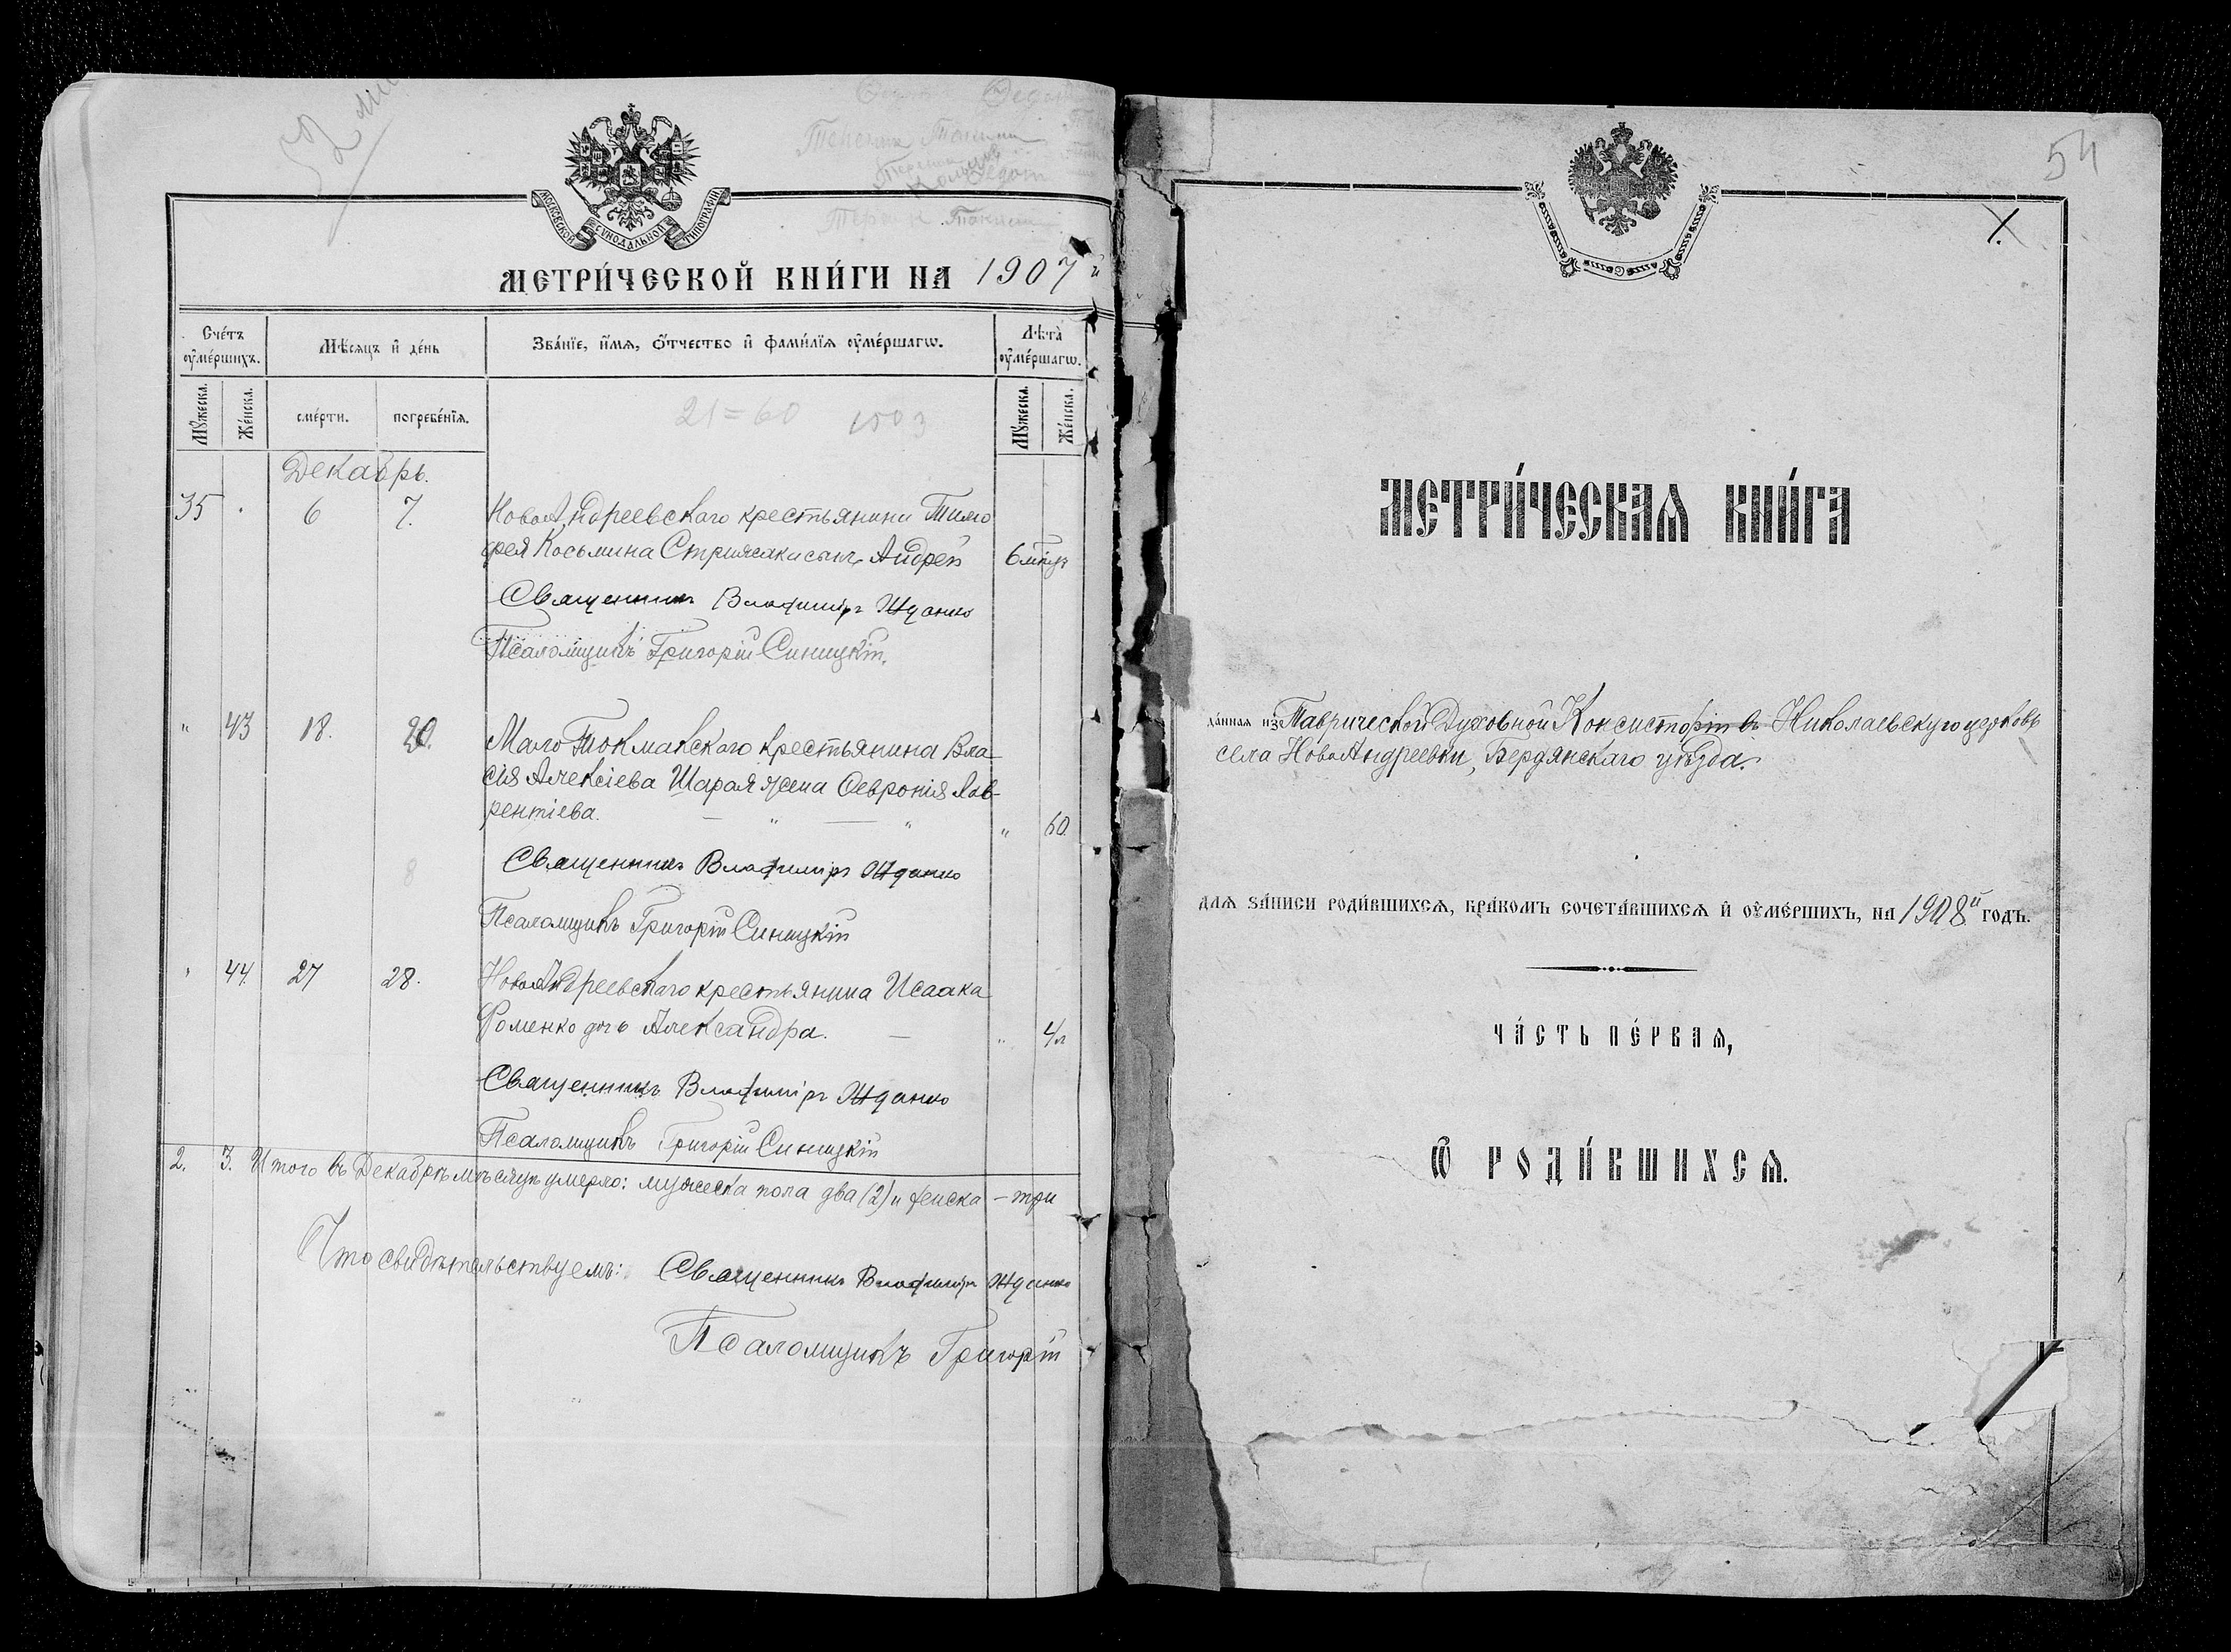 МОСКОВСКОЙ СѴНОДАЛЬНОЙ ТИПОГРАФІИ
МЕТРИ́ЧЕСКОЙ КНИ́ГИ НА 1907 й
Сче́тъ ᲂу҆ме́ршихъ.
Мѣ́сяцъ и҆ де́нь
Зва́нїе, и҆́мѧ, ѻ҆́тчество и҆ фами́лїѧ ᲂу҆ме́ршагѡ.
Лѣ́та ᲂу҆ме́ршагѡ.
Мꙋ́жеска.
Же́нска.
сме́рти.
погребе́нїѧ.
Мꙋ́жеска.
Же́нска.
21=60 1503
Декабрь.
35 6 7. НовоАндреевскаго крестьянини Тимо
фея Косьмина Стрижака сынъ Андрей 6 мѣсяц
Священникъ Владиміръ Жданко
Псаломщикъ Григорій Синицкій.
" 43 18. 20. МалоТокмакскаго крестьянина Вла-
сія Алексіева Шарая жена Февронія Лав-
рентіева. — " — " " 60.
Священникъ Владиміръ Жданко
Псаломщикъ Григорій Синицкій
" 44. 27 28. НовоАндреевскаго крестьянина Исаака
Фоменко дочь Александра. — " 4 л
Священникъ Владиміръ Жданко
Псаломщикъ Григорій Синицкій
2. 3. Итого въ Декабрѣ мѣсяцѣ умерло: мужеска пола два (2) и женска – три
Что свидѣтельствуемъ: Священникъ Владиміръ Жданко
Псаломщикъ Григорій
54
1.
МЕТРИ́ЧЕСКАѦ КНИ́ГА
да́нная из Таврической Духовной Консисторіи въ Николаевскую церковь
села НовоАндреевки, Бердянскаго уѣзда.
длѧ за́писи роди́вшихсѧ, бра́комъ сочета́вшихсѧ и҆ ᲂу҆ме́ршихъ, на 1908й годъ.
ЧА́СТЬ ПЕ́РВАѦ,
Ѽ РОДИ́ВШИХСѦ.